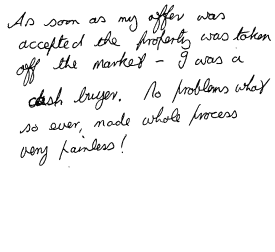 As soon as my offer was
accepted the property was taken
off the market - I was a
cash buyer. No problems what
so ever, made whole process
very painless!